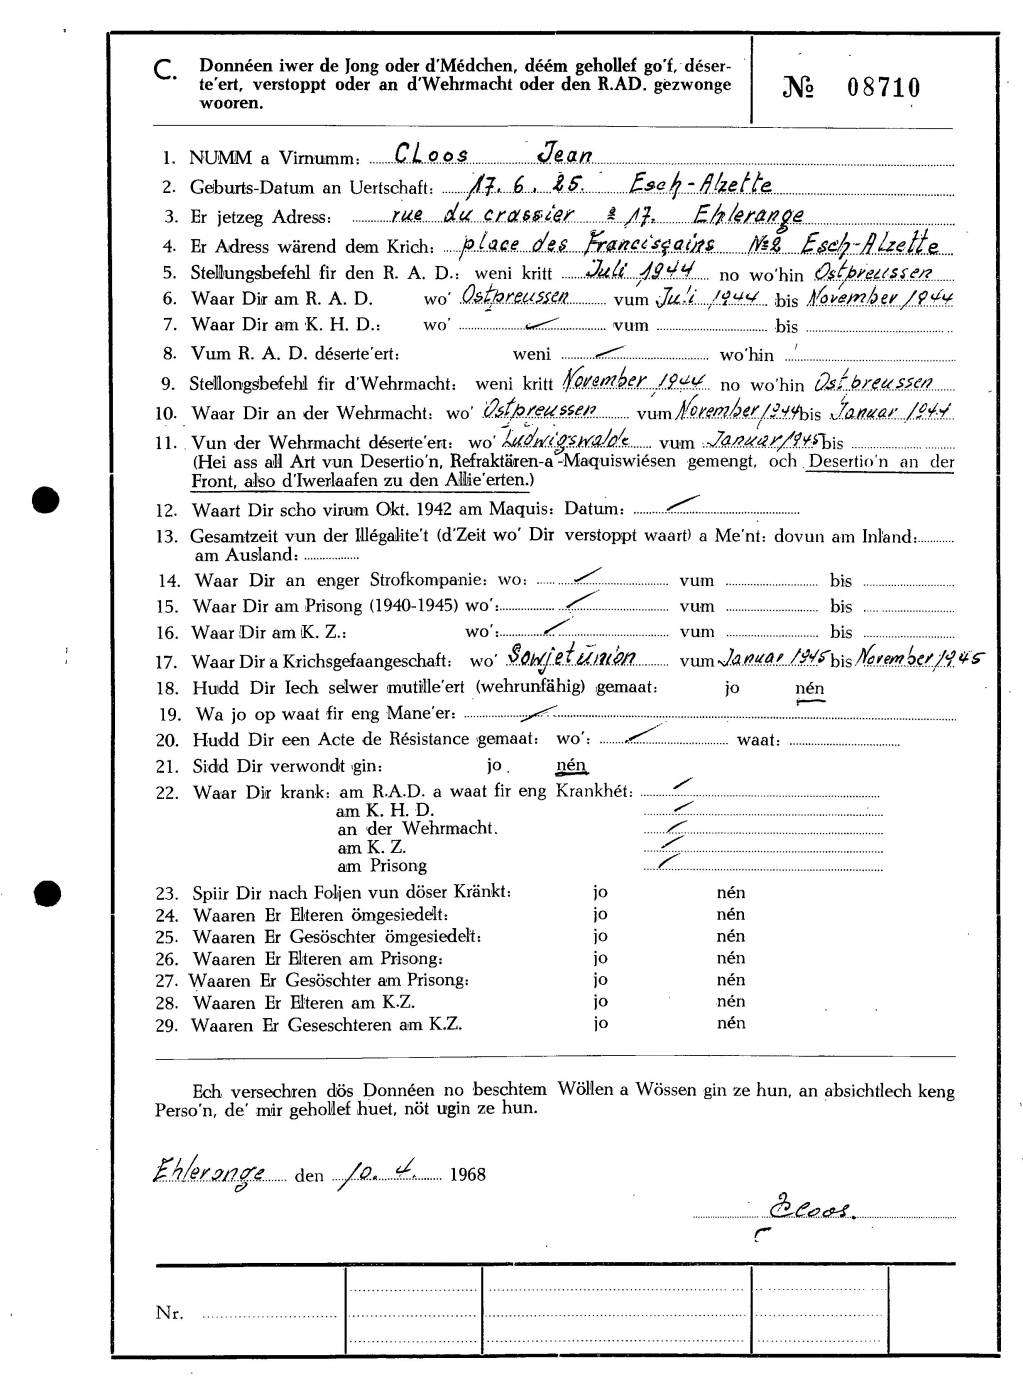 C. Donnéen iwer de Jong oder d'Médchen, déém gehollef go'f, déser-
te'ert, verstoppt oder an d'Wehrmacht oder den R.AD. gezwonge
wooren.
№ 08710
1. NUMM a Virnumm: Cloos Jean
2. Geburts-Datum an Uertschaft: 17. 6. 25. Esch-Alzette
3. Er jetzeg Adress: rue du crassier 17. Ehlerange
4. Er Adress wärend dem Krich: place des Franciscains № 2 Esch-Alzette
5. Stellungsbefehl fir den R. A. D.: weni kritt Juli 1944 no wo'hin Ostpreussen
6. Waar Dir am R. A. D. wo' Ostpreussen vum Juli 1944 bis November 1944
7. Waar Dir am K. H. D.: wo' vum bis
8. Vum R. A. D. déserte'ert: weni wo'hin
9. Stellongsbefehl fir d'Wehrmacht: weni kritt November 1944 no wo'hin Ostbreussen
10. Waar Dir an der Wehrmacht: wo' Ostpreussen vum November 1944 bis Januar 1944
11. Vun der Wehrmacht déserte'ert: wo' Ludwigswalde vum Januar 1945 bis
(Hei ass all Art vun Desertio'n, Refraktären-a -Maquiswiésen gemengt, och Desertio'n an der
Front, also d'Iwerlaafen zu den Allie'erten.)
12. Waart Dir scho virum Okt. 1942 am Maquis: Datum:
13. Gesamtzeit vun der Illégalite't (d'Zeit wo' Dir verstoppt waart) a Me'nt: dovun am Inland:
am Ausland:
14. Waar Dir an enger Strofkompanie: wo: vum bis
15. Waar Dir am Prisong (1940-1945) wo': vum bis
16. Waar Dir am K. Z.: wo': vum bis
17. Waar Dir a Krichsgefaangeschaft: wo' Sowjetunion vum Januar 1945 bis November 1945
18. Hudd Dir Iech selwer mutille'ert (wehrunfähig) gemaat: jo nén
19. Wa jo op waat fir eng Mane'er:
20. Hudd Dir een Acte de Résistance gemaat: wo': waat:
21. Sidd Dir verwondt gin: jo nén
22. Waar Dir krank: am R.A.D. a waat fir eng Krankhét:
am K. H. D.
an der Wehrmacht.
am K. Z.
am Prisong
23. Spiir Dir nach Foljen vun döser Kränkt: jo nén
24. Waaren Er Elteren ömgesiedelt: jo nén
25. Waaren Er Gesöschter ömgesiedelt: jo nén
26. Waaren Er Elteren am Prisong: jo nén
27. Waaren Er Gesöschter am Prisong: jo nén
28. Waaren Er Elteren am K.Z. jo nén
29. Waaren Er Geseschteren am K.Z. jo nén
Ech versechren dös Donnéen no beschtem Wöllen a Wössen gin ze hun, an absichtlech keng
Perso'n, de' mir gehollef huet, nöt ugin ze hun.
Ehlerange den 10. 4. 1968
Cloos.
Nr.